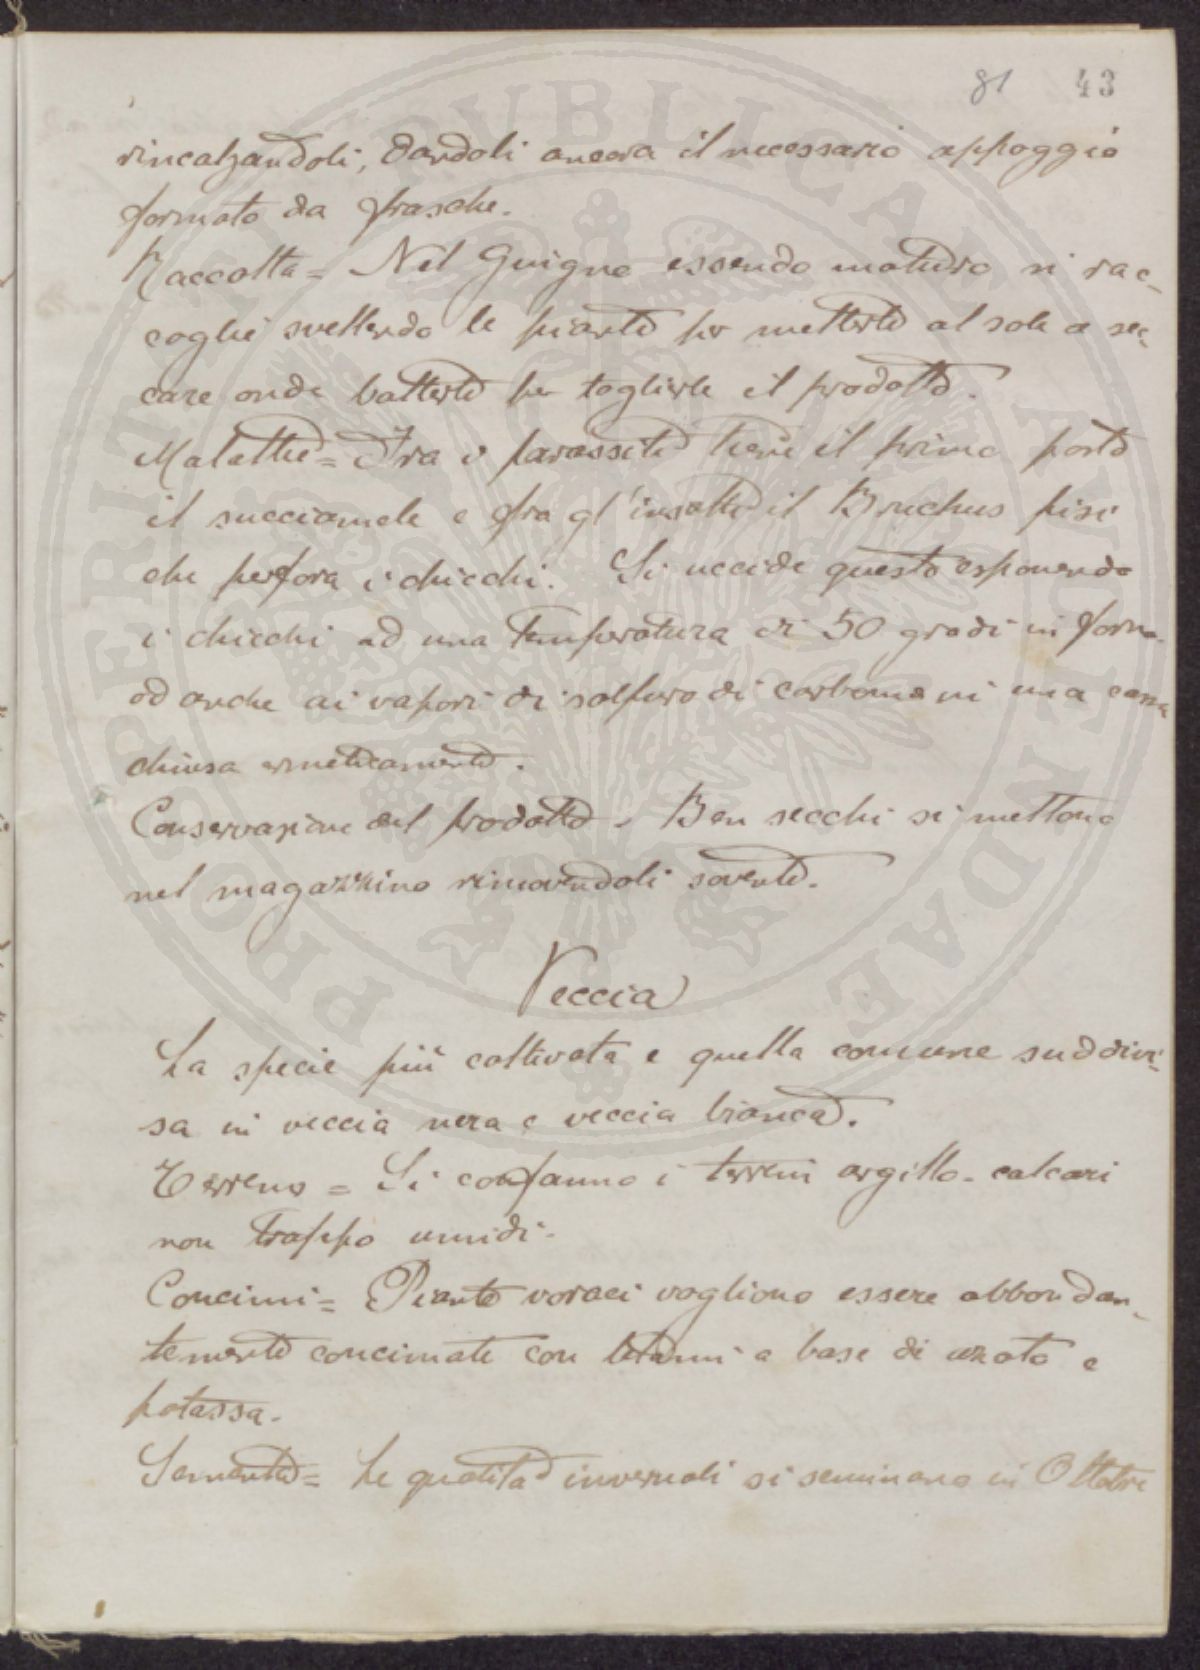 81 43
rincalzandoli, dandoli ancora il necessario appoggio
formato da frasche.
Raccolta = Nel Giugno essendo maturo si rac-
coglie svellendo le piante per metterle al sole a sec-
care onde batterle per toglierle il prodotto.
Malattie = Fra i parassiti tiene il primo posto
il succiamele e fra gl'insetti il Bruchus pisi
che perfora i chicchi. Si uccide questo esponendo
i chicchi ad una temperatura di 50 gradi in forno
od anche ai vapori di solfuro di carbonio in una cassa
chiusa ermeticamente.
Conservazione del prodotto - Ben secchi si mettono
nel magazzino rimovendoli sovente.
Veccia
La specie più coltivata e quella comune suddivi-
sa in veccia nera e veccia bianca.
Terreno = Si confanno i terreni argillo-calcari
non troppo umidi.
Concimi = Piante voraci vogliono essere abbondan-
temente concimate con letami a base di azoto e
potassa.
Semente = Le qualità invernali si seminano in Ottobre
PROSPERITATI PUBLICAE AUGENDAE